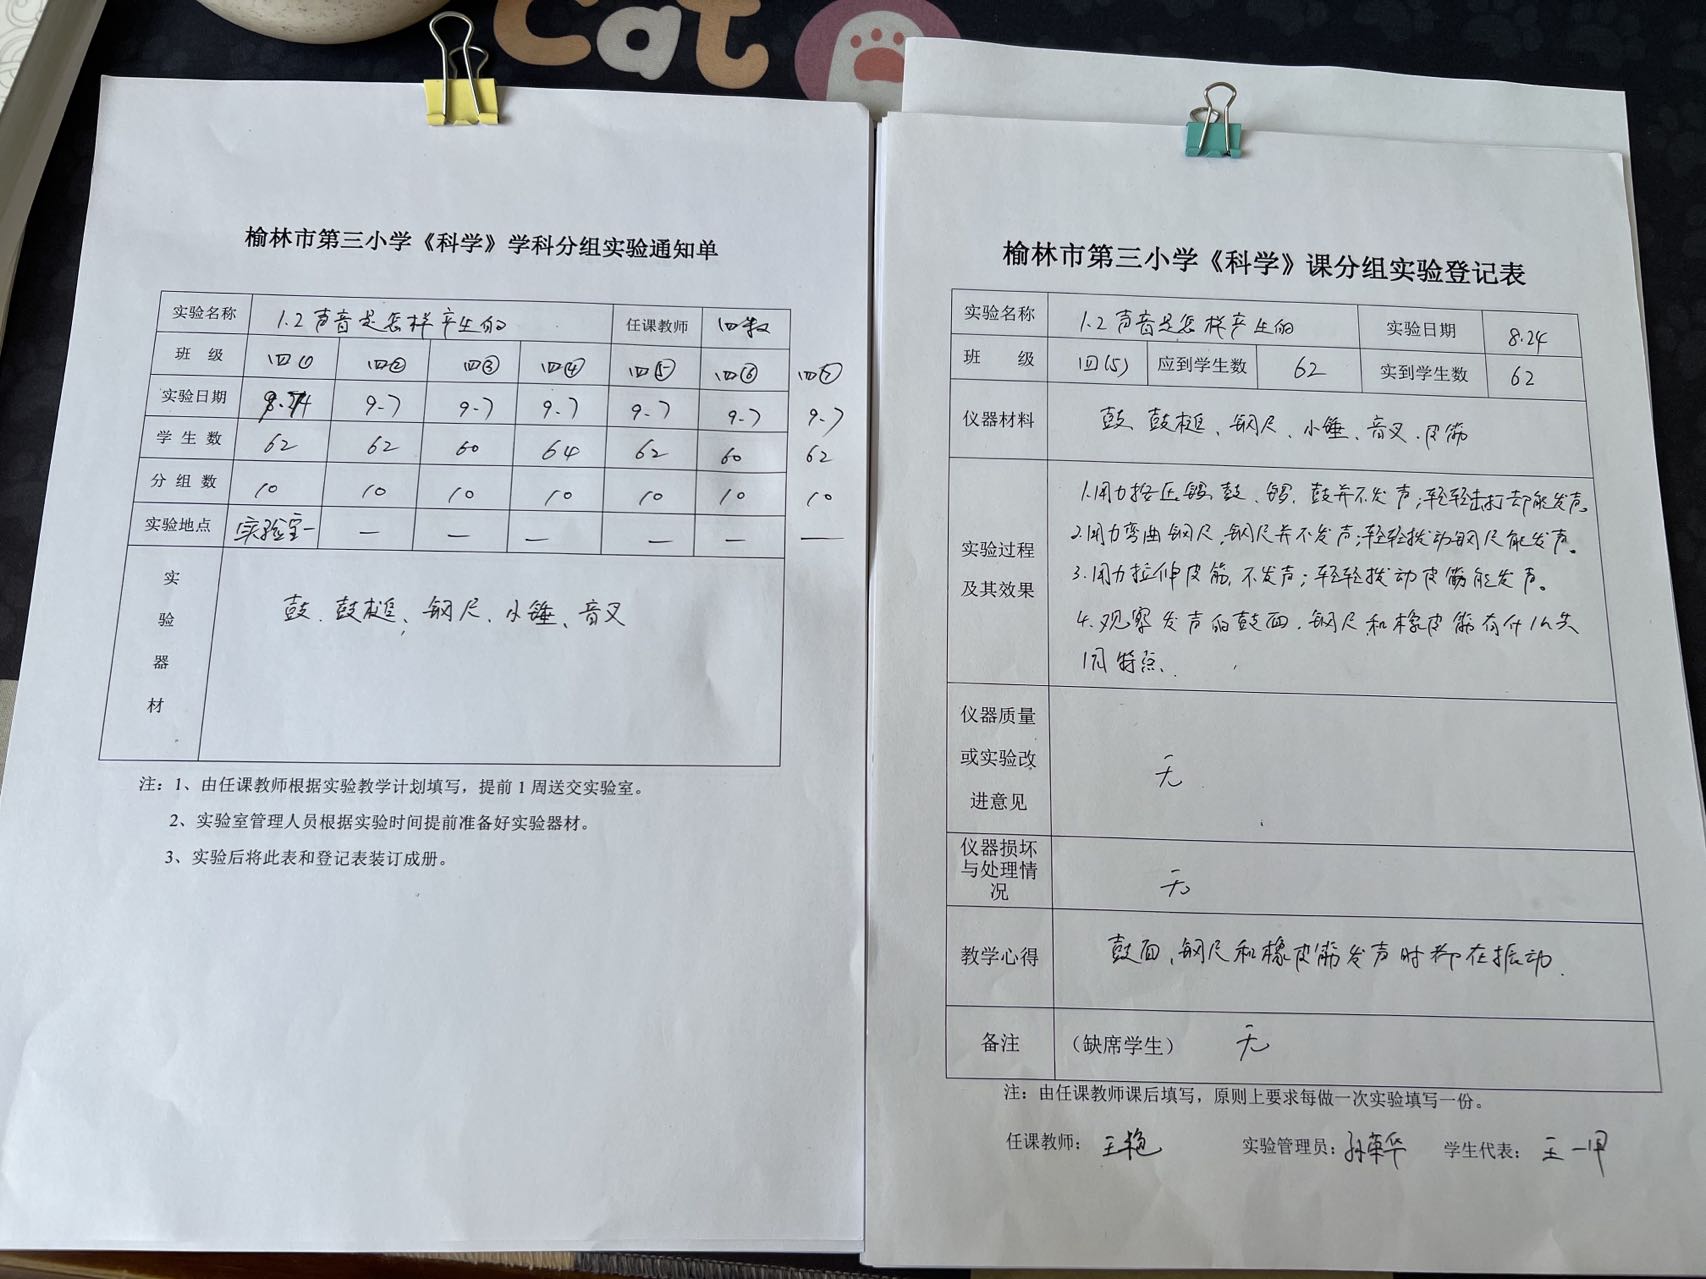 cat
榆林市第三小学《科学》学科分组实验通知单
实验名称 1.2声音是怎样产生的 任课教师
班 级 四① 四② 四③ 四④ 四⑤ 四⑥ 四⑦
实验日期 9-7 9-7 9-7 9-7 9-7 9-7
学生数 62 62 60 64 62 60 62
分组数 10 10 10 10 10 10 10
实验地点 实验室一 — — — — — —
实验器材 鼓、鼓槌、钢尺、小锤、音叉
注：1、由任课教师根据实验教学计划填写，提前1周送交实验室。
2、实验室管理人员根据实验时间提前准备好实验器材。
3、实验后将此表和登记表装订成册。
榆林市第三小学《科学》课分组实验登记表
实验名称 1.2声音是怎样产生的 实验日期 8.24
班 级 四(5) 应到学生数 62 实到学生数 62
仪器材料 鼓、鼓槌、钢尺、小锤、音叉、皮筋
实验过程及其效果
1.用力按压锣、鼓，锣、鼓并不发声；轻轻击打却能发声。
2.用力弯曲钢尺，钢尺并不发声；轻轻拨动钢尺能发声。
3.用力拉伸皮筋，不发声；轻轻拨动皮筋能发声。
4.观察发声的鼓面、钢尺和橡皮筋有什么共
同特点.
仪器质量或实验改进意见 无
仪器损坏与处理情况 无
教学心得 鼓面、钢尺和橡皮筋发声时都在振动.
备注 （缺席学生） 无
注：由任课教师课后填写，原则上要求每做一次实验填写一份。
任课教师：王艳 实验管理员：孙荣华 学生代表：王一甲